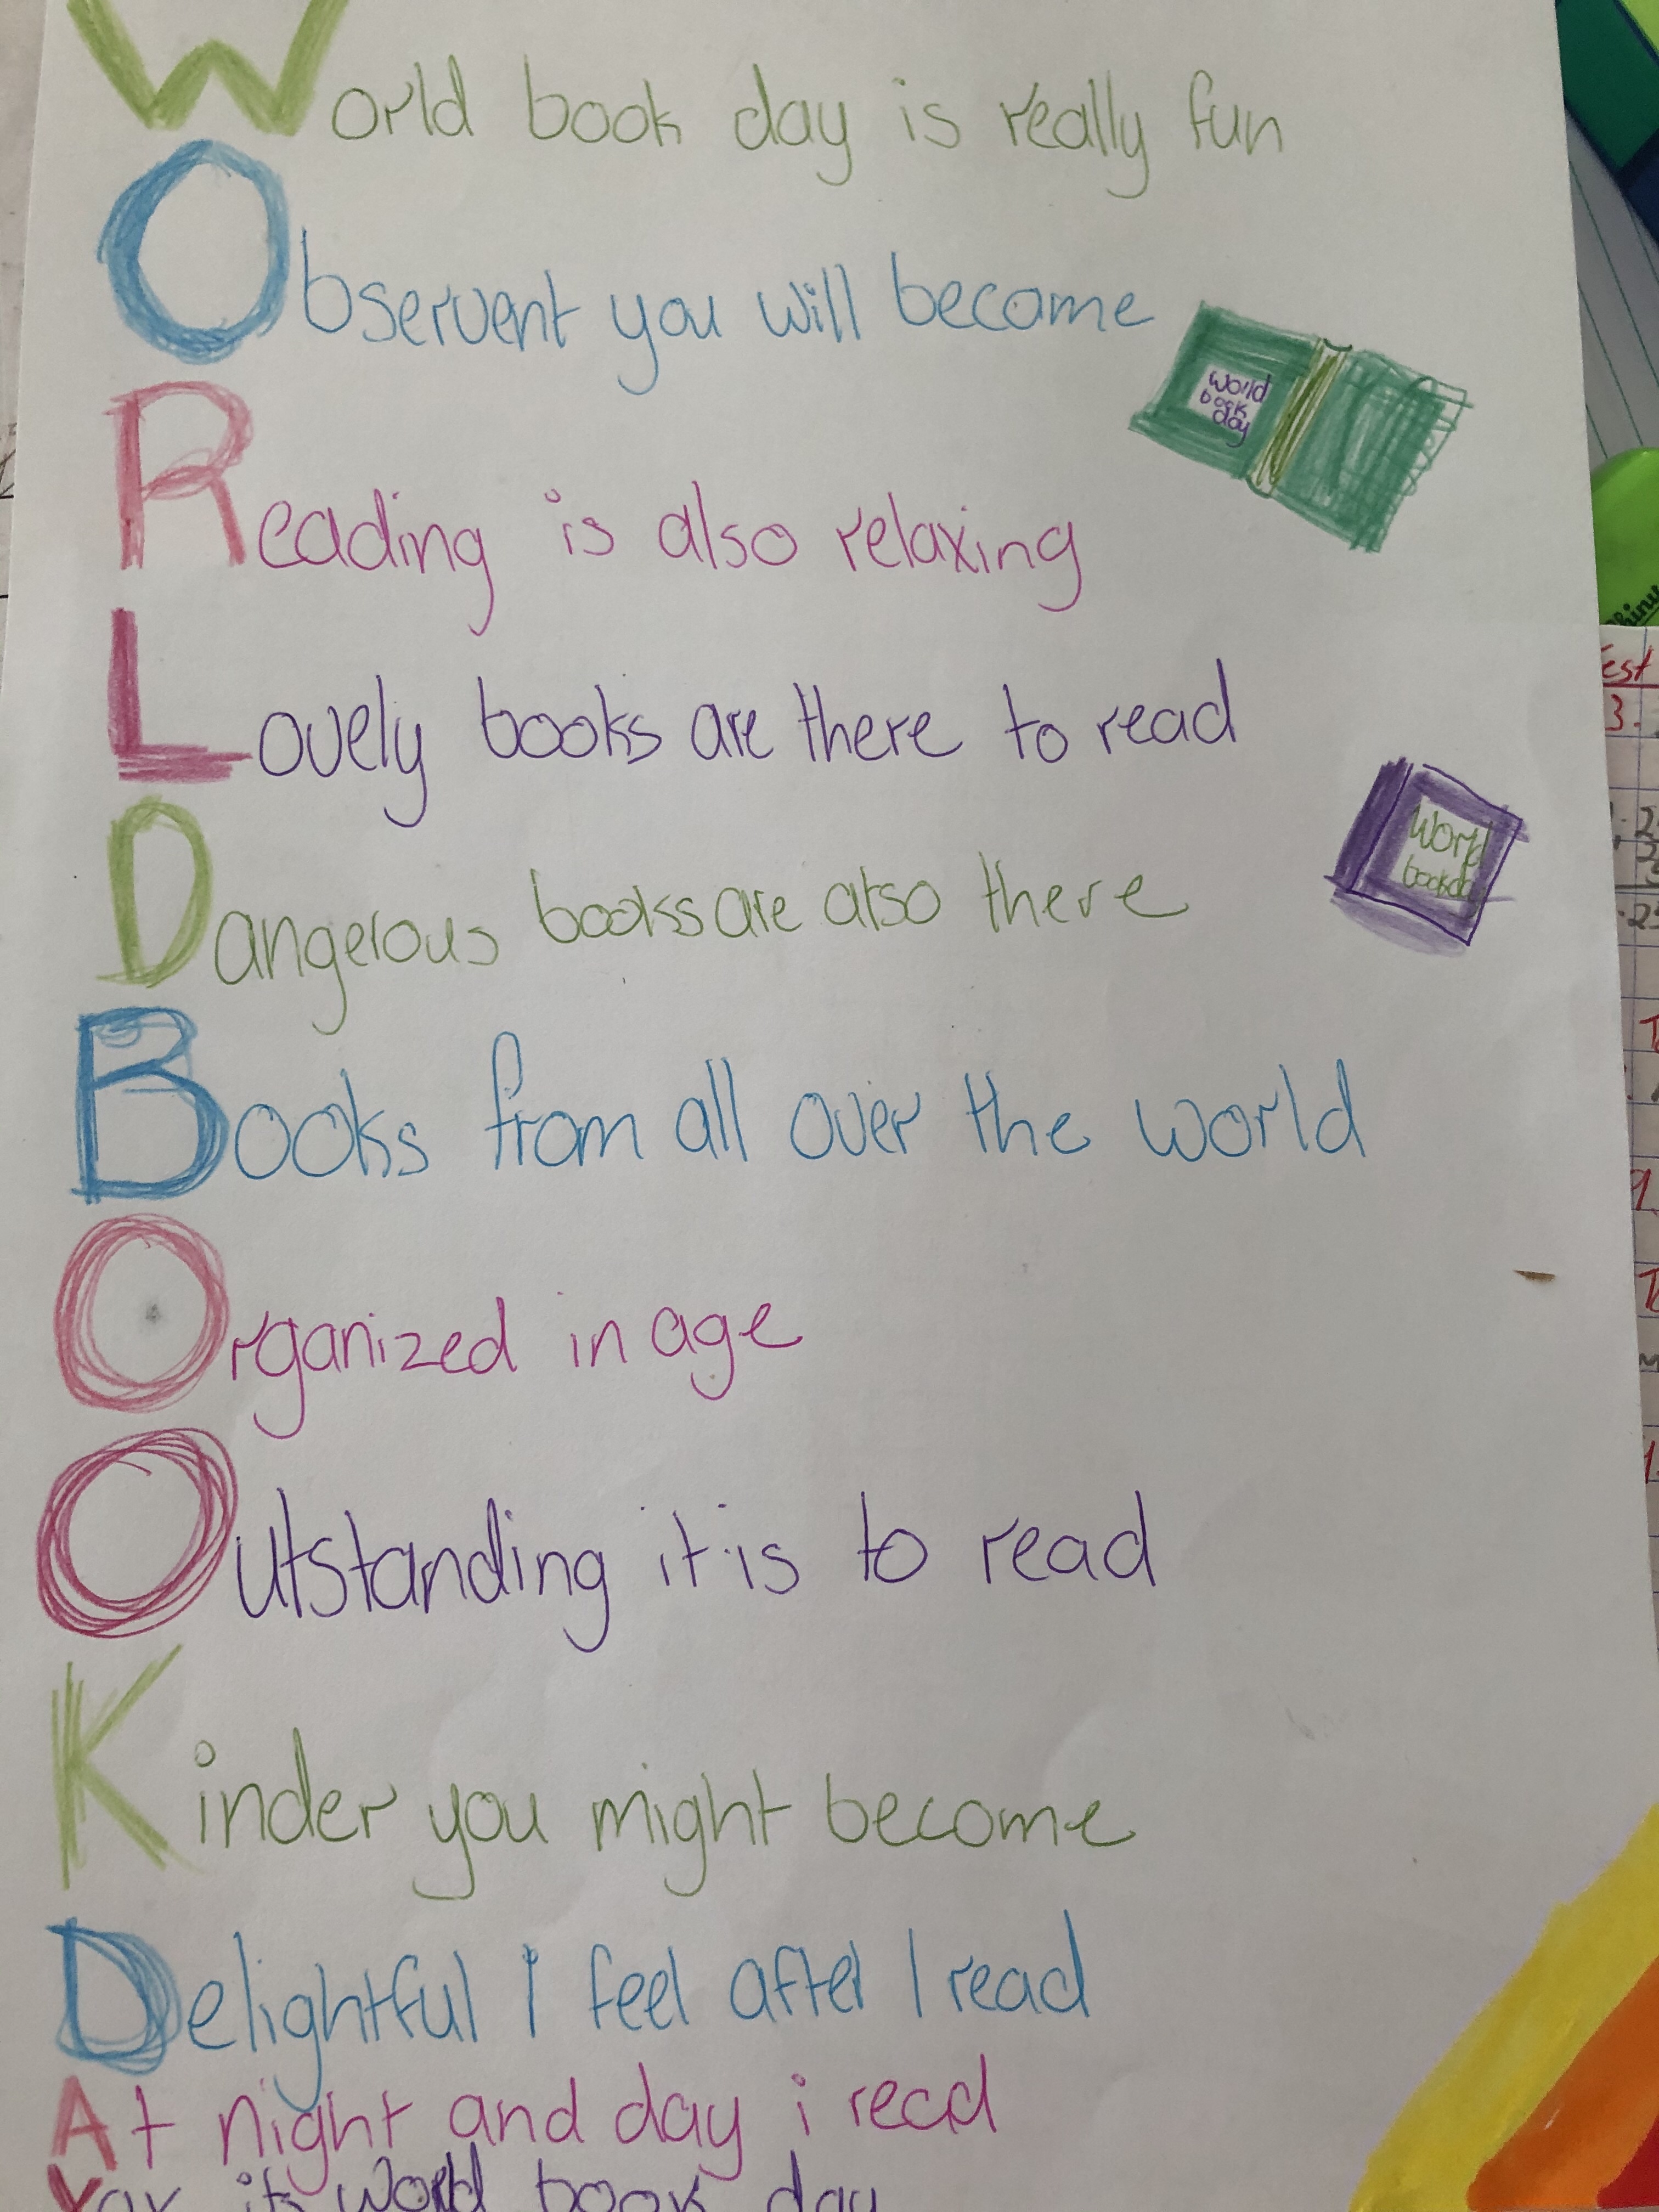 World book day is really fun
Observent you will become
world
book
day
Reading is also relaxing
Lovely books are there to read
World
book
Dangerous books are also there
Books from all over the world
Organized in age
Outstanding it is to read
Kinder you might become
Delightful I feel after I read
At night and day i read
Yay its world book day